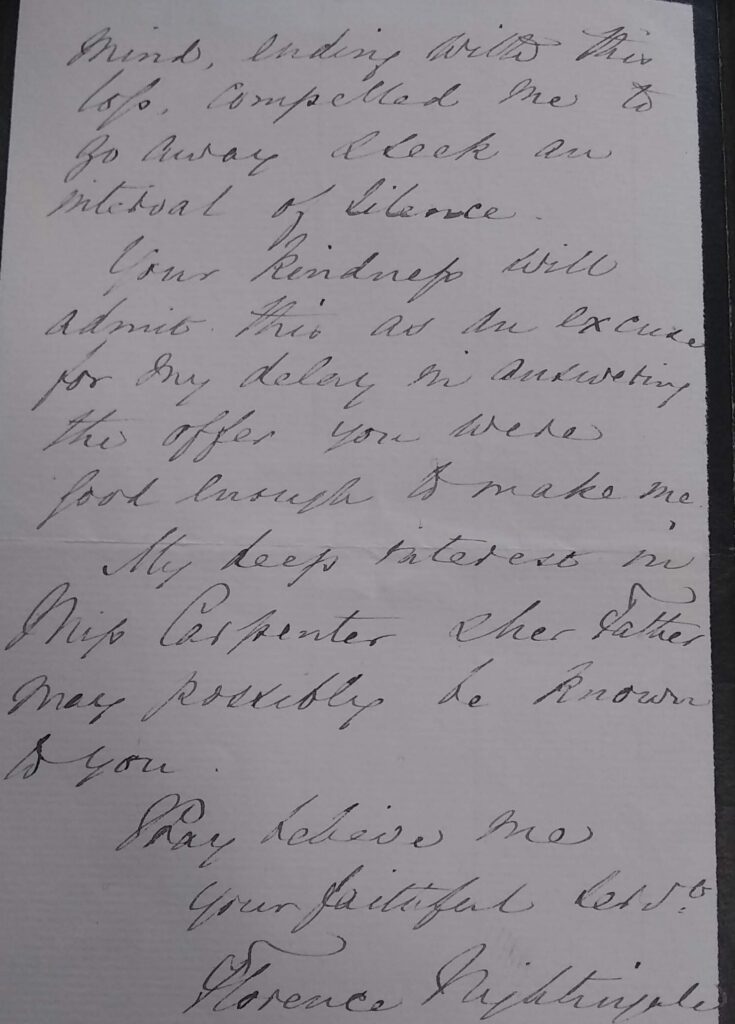 mind, ending with this
loss, compelled me to
go away & seek an
interval of silence.
Your kindness will
admit this as an excuse
for my delay in answering
the offer you were
good enough to make me.
My deep interest in
Miss Carpenter & her Father
may possibly be known
to you.
Pray believe me
your faithful serv.t
Florence Nightingale